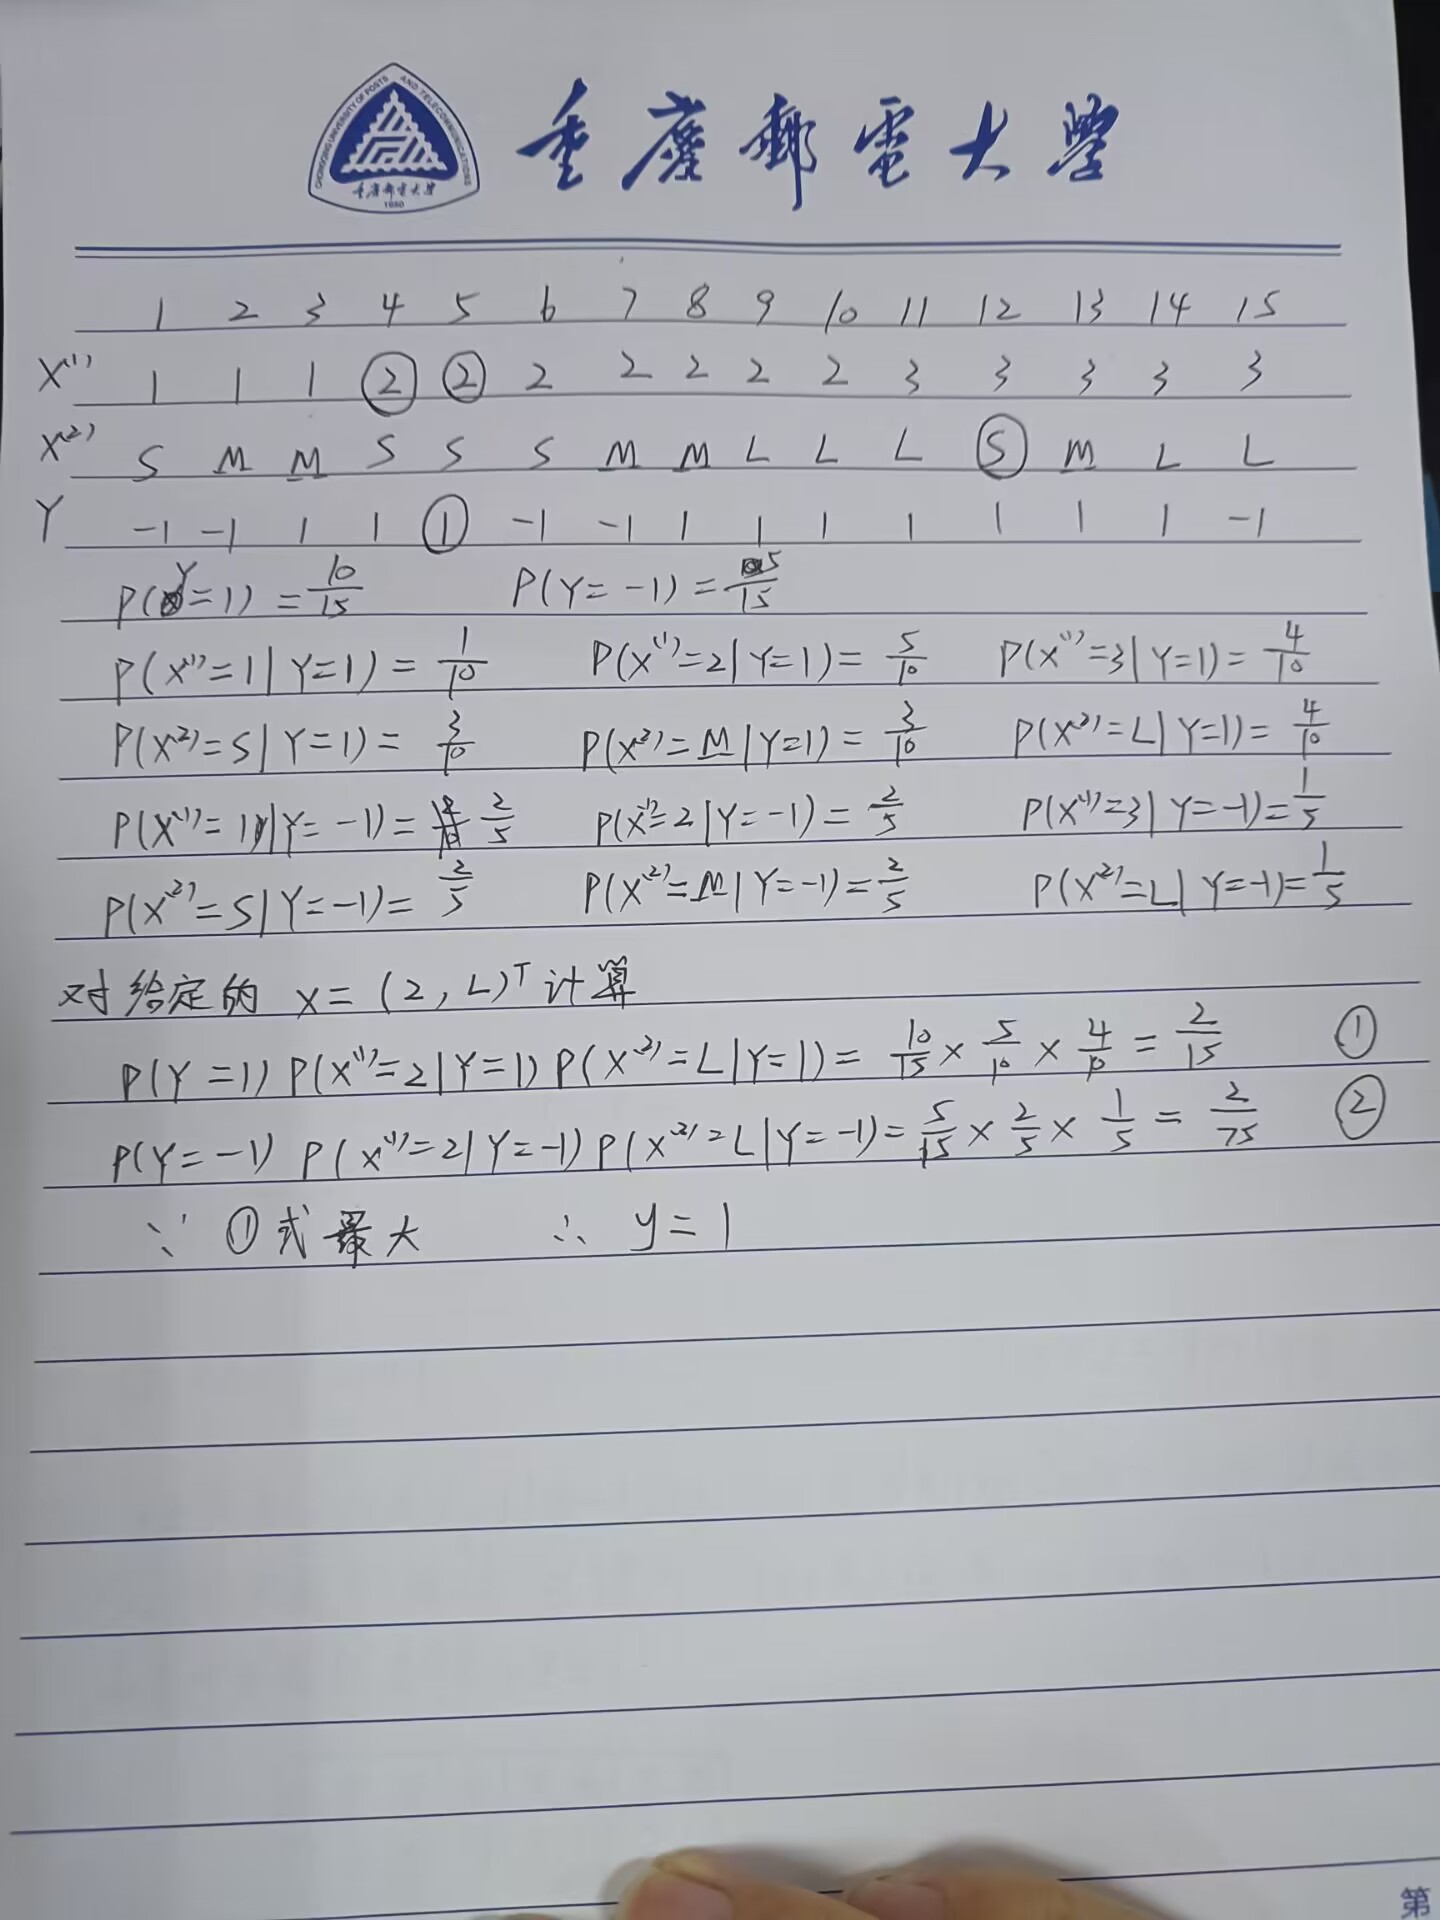 CHONGQING UNIVERSITY OF POSTS AND TELECOMMUNICATIONS
重庆邮电大学
1950
重慶郵電大學
1 2 3 4 5 6 7 8 9 10 11 12 13 14 15
X⁽¹⁾ 1 1 1 ② ② 2 2 2 2 2 3 3 3 3 3
X⁽²⁾ S M M S S S M M L L L Ⓢ M L L
Y -1 -1 1 1 ① -1 -1 1 1 1 1 1 1 1 -1
P(Y=1) = 10/15 P(Y=-1) = 5/15
P(X⁽¹⁾=1|Y=1) = 1/10 P(X⁽¹⁾=2|Y=1) = 5/10 P(X⁽¹⁾=3|Y=1) = 4/10
P(X⁽²⁾=S|Y=1) = 3/10 P(X⁽²⁾=M|Y=1) = 3/10 P(X⁽²⁾=L|Y=1) = 4/10
P(X⁽¹⁾=1|Y=-1) = 2/5 P(X⁽¹⁾=2|Y=-1) = 2/5 P(X⁽¹⁾=3|Y=-1) = 1/5
P(X⁽²⁾=S|Y=-1) = 2/5 P(X⁽²⁾=M|Y=-1) = 2/5 P(X⁽²⁾=L|Y=-1) = 1/5
对给定的 x=(2,L)ᵀ 计算
P(Y=1) P(X⁽¹⁾=2|Y=1) P(X⁽²⁾=L|Y=1) = 10/15 × 5/10 × 4/10 = 2/15 ①
P(Y=-1) P(X⁽¹⁾=2|Y=-1) P(X⁽²⁾=L|Y=-1) = 5/15 × 2/5 × 1/5 = 2/75 ②
∵ ①式最大 ∴ y=1
第